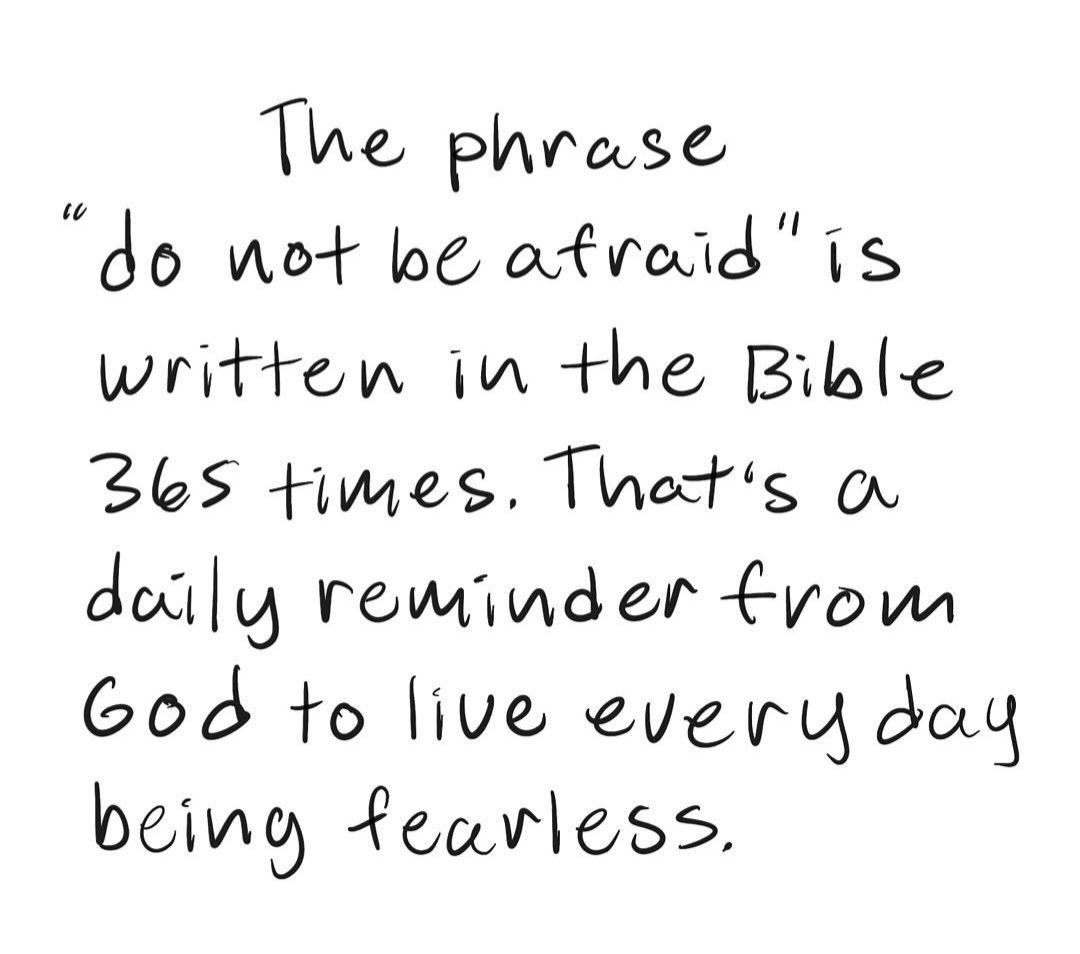 The phrase
"do not be afraid" is
written in the Bible
365 times. That's a
daily reminder from
God to live every day
being fearless.